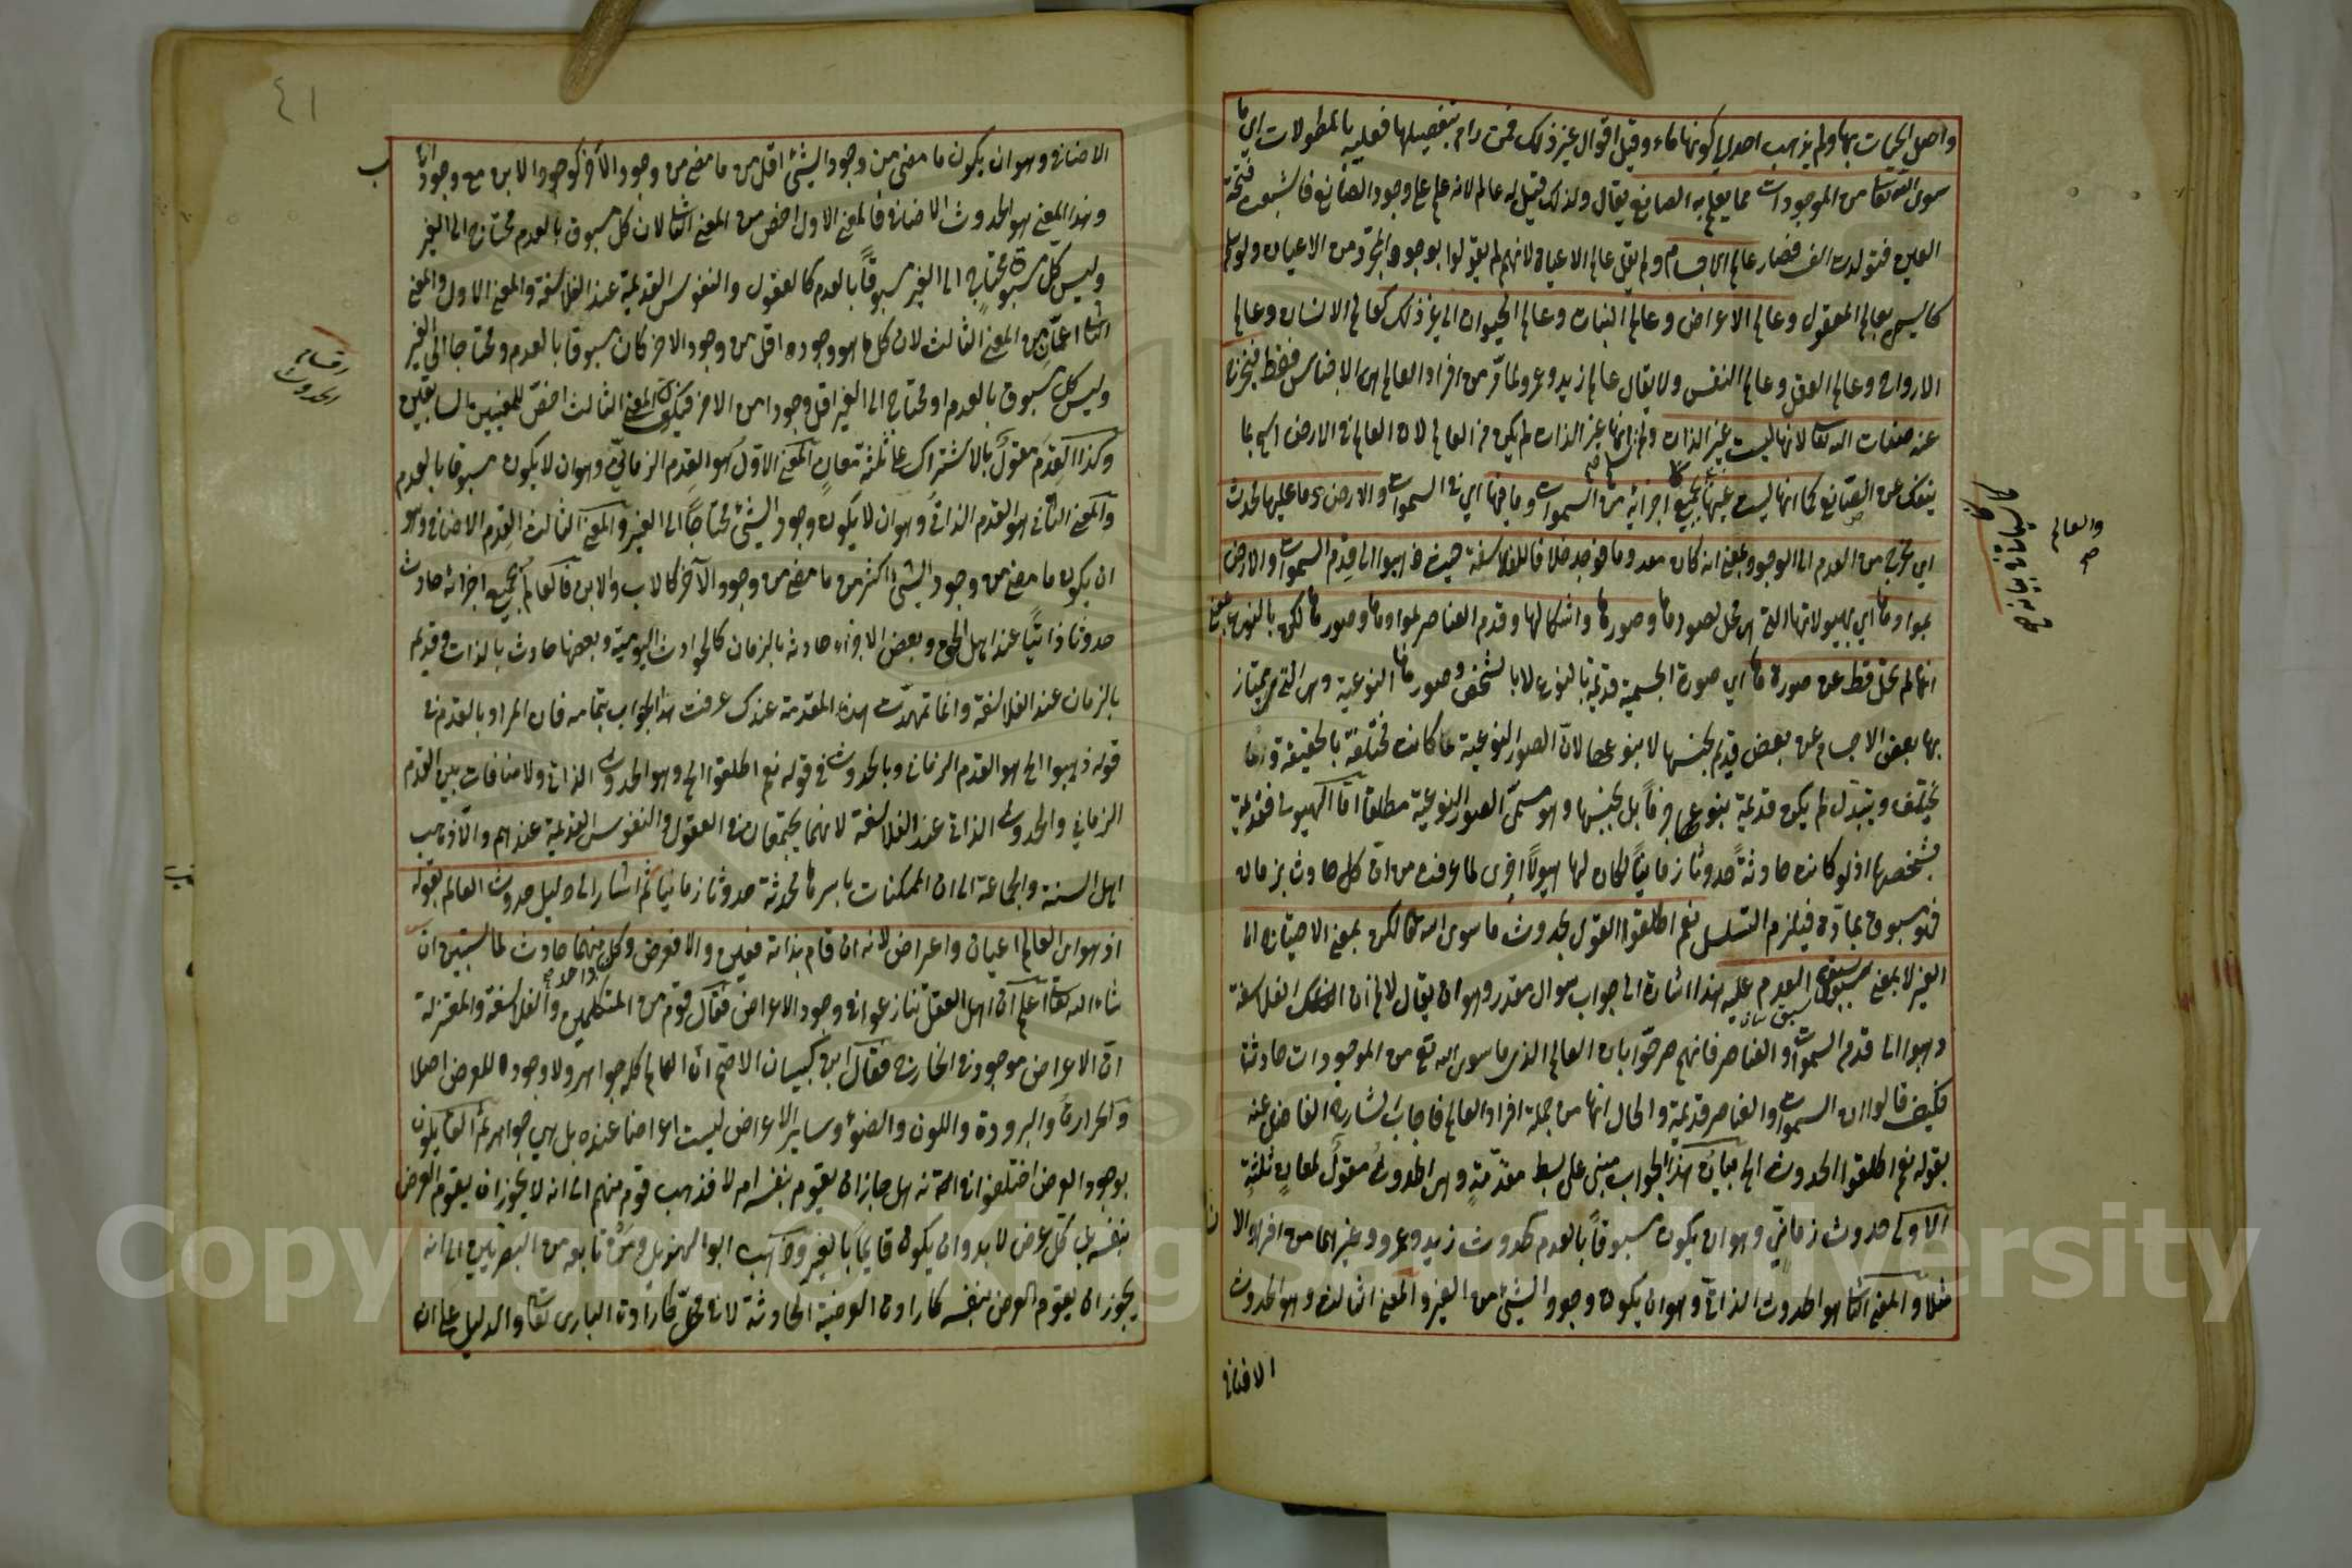 واصل الحيات بها ولم يذهب احد الى كونها ماء وقيل اقوال غير ذلك فمن رام تفصيلها فعليه بالمطولات اي ما
سوى الله تعالى من الموجودات مما يعلم به الصانع يقال ولذلك قيل له عالم لانه علم على وجود الصانع فاشبعت فتحة
العين فتولدت الف فصار عالم الاجسام ولم يقل عالم الاعيان لانهم لم يقولوا بوجود المجرد من الاعيان ولو سلم
كما يسمى بعالم المعقول وعالم الاعراض وعالم النبات وعالم الحيوان الى غير ذلك كعالم الانسان وعالم
الارواح وعالم العقل وعالم النفس ولا يقال عالم زيد وعمرو لما مر من افراد العالم هي الاجناس فقط فيخرج
عنه صفات الله تعالى لانها ليست غير الذات ولم انها غير الذات لم يكن من العالم لان العالم في الارض اسم لما
ينفك عن الصانع كما انها ليست عينها بجميع اجزائه من السموات وما فيها اي في السموات والارض وما عليها محدث
اي مخرج من العدم الى الوجود بمعنى انه كان معدوما فوجد خلافا للفلاسفة حيث ذهبوا الى قدم السموات والارض
بموادها اي بهيولاتها التي هي محل لصورها وصورها واشكالها وقدم العناصر لموادها وصورها لكن بالنوع بمعنى
انها لم تخل قط عن صورة ما اي صورة الجسمية قديمة بالنوع لا بالشخص وصورها النوعية وهي التي يمتاز
بها بعض الاجسام عن بعض قديم بجنسها لا بنوعها لان الصور النوعية لما كانت مختلفة بالحقيقة وما
يختلف ويتبدل لم يكن قديمة بنوعها جزما بل بجنسها وهو مسمى الصور النوعية مطلقا اما الهيولى فقديمة
بشخصها اذ لو كانت حادثة حدوثا زمانيا لكان لها هيولى اخرى لما عرفت من ان كل حادث بزمان
فهو مسبوق بمادة فيلزم التسلسل نعم اطلقوا القول بحدوث ما سوى الله تعالى لكن بمعنى الاحتياج الى
الغير لا بمعنى سبق العدم عليه هذا اشارة الى جواب سوال مقدر وهو ان يقال لانم ان الفلاسفة
ذهبوا الى قدم السموات والعناصر فانهم صرحوا بان العالم الذي ما سوى الله تع من الموجودات حادثة
فكيف قالوا ان السموات والعناصر قديمة والحال انها من جملة افراد العالم فاجاب الشارح الفاضل عنه
بقوله نعم اطلقوا الحدوث الى بيان هذا الجواب مبني على بسط مقدمة وهي الحدوث مقول لمعان ثلثة
الاول حدوث زماني وهو ان يكون مسبوقا بالعدم كحدوث زيد وعمرو وغيرهما من افراد الا ن
مثلا والمعنى الثاني هو الحدوث الذاتي وهو ان يكون وجود الشئ من الغير والمعنى الثالث وهو الحدوث
الاضافي
والعالم
صح
٤١
الاضافي وهو ان يكون ما مضى من وجود الشئ اقل من ما مضى من وجود الآخر كوجود الابن مع وجود الاب
وهذا المعنى هو الحدوث الاضافي فالمعنى الاول اخص من المعنى الثاني لان كل مسبوق بالعدم محتاج الى الغير
وليس كل محتاج الى الغير مسبوقا بالعدم كالعقول والنفوس القديمة عند الفلاسفة والمعنى الاول والمعنى
الثاني اعم من المعنى الثالث لان كل ما هو وجوده اقل من وجود الاخر كان مسبوقا بالعدم ومحتاجا الى الغير
وليس كل مسبوق بالعدم او محتاج الى الغير اقل وجودا من الاخر فيكون المعنى الثالث اخص للمعنيين السابقين
وكذا القدم مقول بالاشتراك على ثلثة معان المعنى الاول هو القدم الزماني وهو ان لا يكون مسبوقا بالعدم
والمعنى الثاني هو القدم الذاتي وهو ان لا يكون وجود الشئ محتاجا الى الغير والمعنى الثالث القدم الاضافي وهو
ان يكون ما مضى من وجود الشئ اكثر من ما مضى من وجود الآخر كالاب والابن فالعالم بجميع اجزائه حادث
حدوثا ذاتيا عند اهل الحق وبعض الاجزاء حادثة بالزمان كالحوادث اليومية وبعضها حادث بالذات وقديم
بالزمان عند الفلاسفة واذا تمهدت هذه المقدمة عندك عرفت هذا الجواب بتمامه فان المراد بالقدم في
قوله ذهبوا الى هو القدم الزماني وبالحدوث في قوله نعم اطلقوا الخ وهو الحدوث الذاتي ولا منافات بين القدم
الزماني والحدوث الذاتي عند الفلاسفة لانهما يجتمعان في العقول والنفوس القديمة عندهم والا ذهب
اهل السنة والجماعة الى ان الممكنات باسرها محدثة حدوثا زمانيا ثم اشار الى دليل حدوث العالم بقوله
اذ هو اي العالم اعيان واعراض لانه ان قام بذاته فعين والا فعرض وكل منهما حادث لما سنبين ان
شاء الله تعالى اعلم ان اهل العقل تنازعوا في وجود الاعراض فقال قوم من المتكلمين والفلاسفة والمعتزلة
ان الاعراض موجودة في الخارج فقال ابن كيسان الاصم ان العالم كله جواهر ولا وجود للعرض اصلا
والحرارة والبرودة واللون والضوء وسائر الاعراض ليست اعراضا عنده بل هي جواهر ثم القائلون
بوجود العرض اختلفوا في انه هل جاز ان يقوم بنفسه ام لا فذهب قوم منهم الى انه لا يجوز ان يقوم العرض
بنفسه بل كل عرض لا بد وان يكون قائما بالغير وذهب ابو الهذيل ومن تابعه من البصريين الى انه
يجوز ان يقوم العرض بنفسه كارادة العرضية الحادثة لا في محل كارادة الباري تعالى والدليل على ان
اقسام
الحدوث